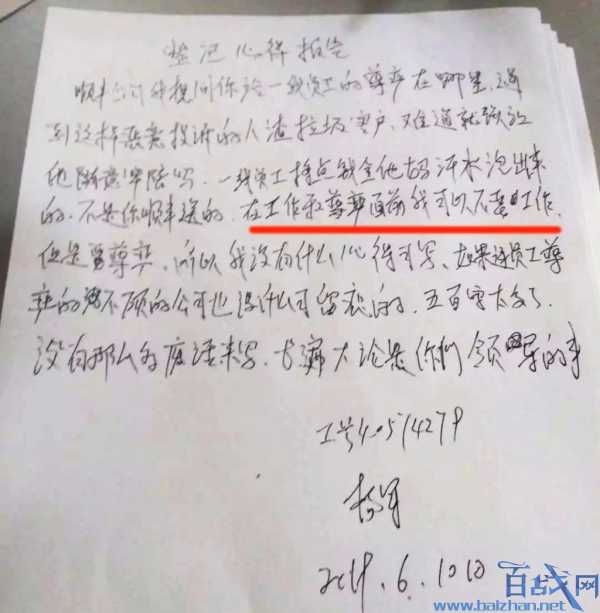 笔记心得报告
顺丰公司我想问你给一线员工的尊严在哪里,遇
到这样恶意投诉的人渣垃圾客户,难道就就让
他随意牢陪吗.一线员工挣点钱全他妈汗水泡出来
的.不是你顺丰送的.在工作和尊严面前我可以不要工作.
但是要尊严.所以我没有什么心得可写.如果连员工尊
严的都不顾的公司也没什么可留恋的.五百字太多了.
没有那么多废话来写.长篇大论是你们领导的事
工号40574279
杨军
2019.6.10日
百战网
www.baizhan.net